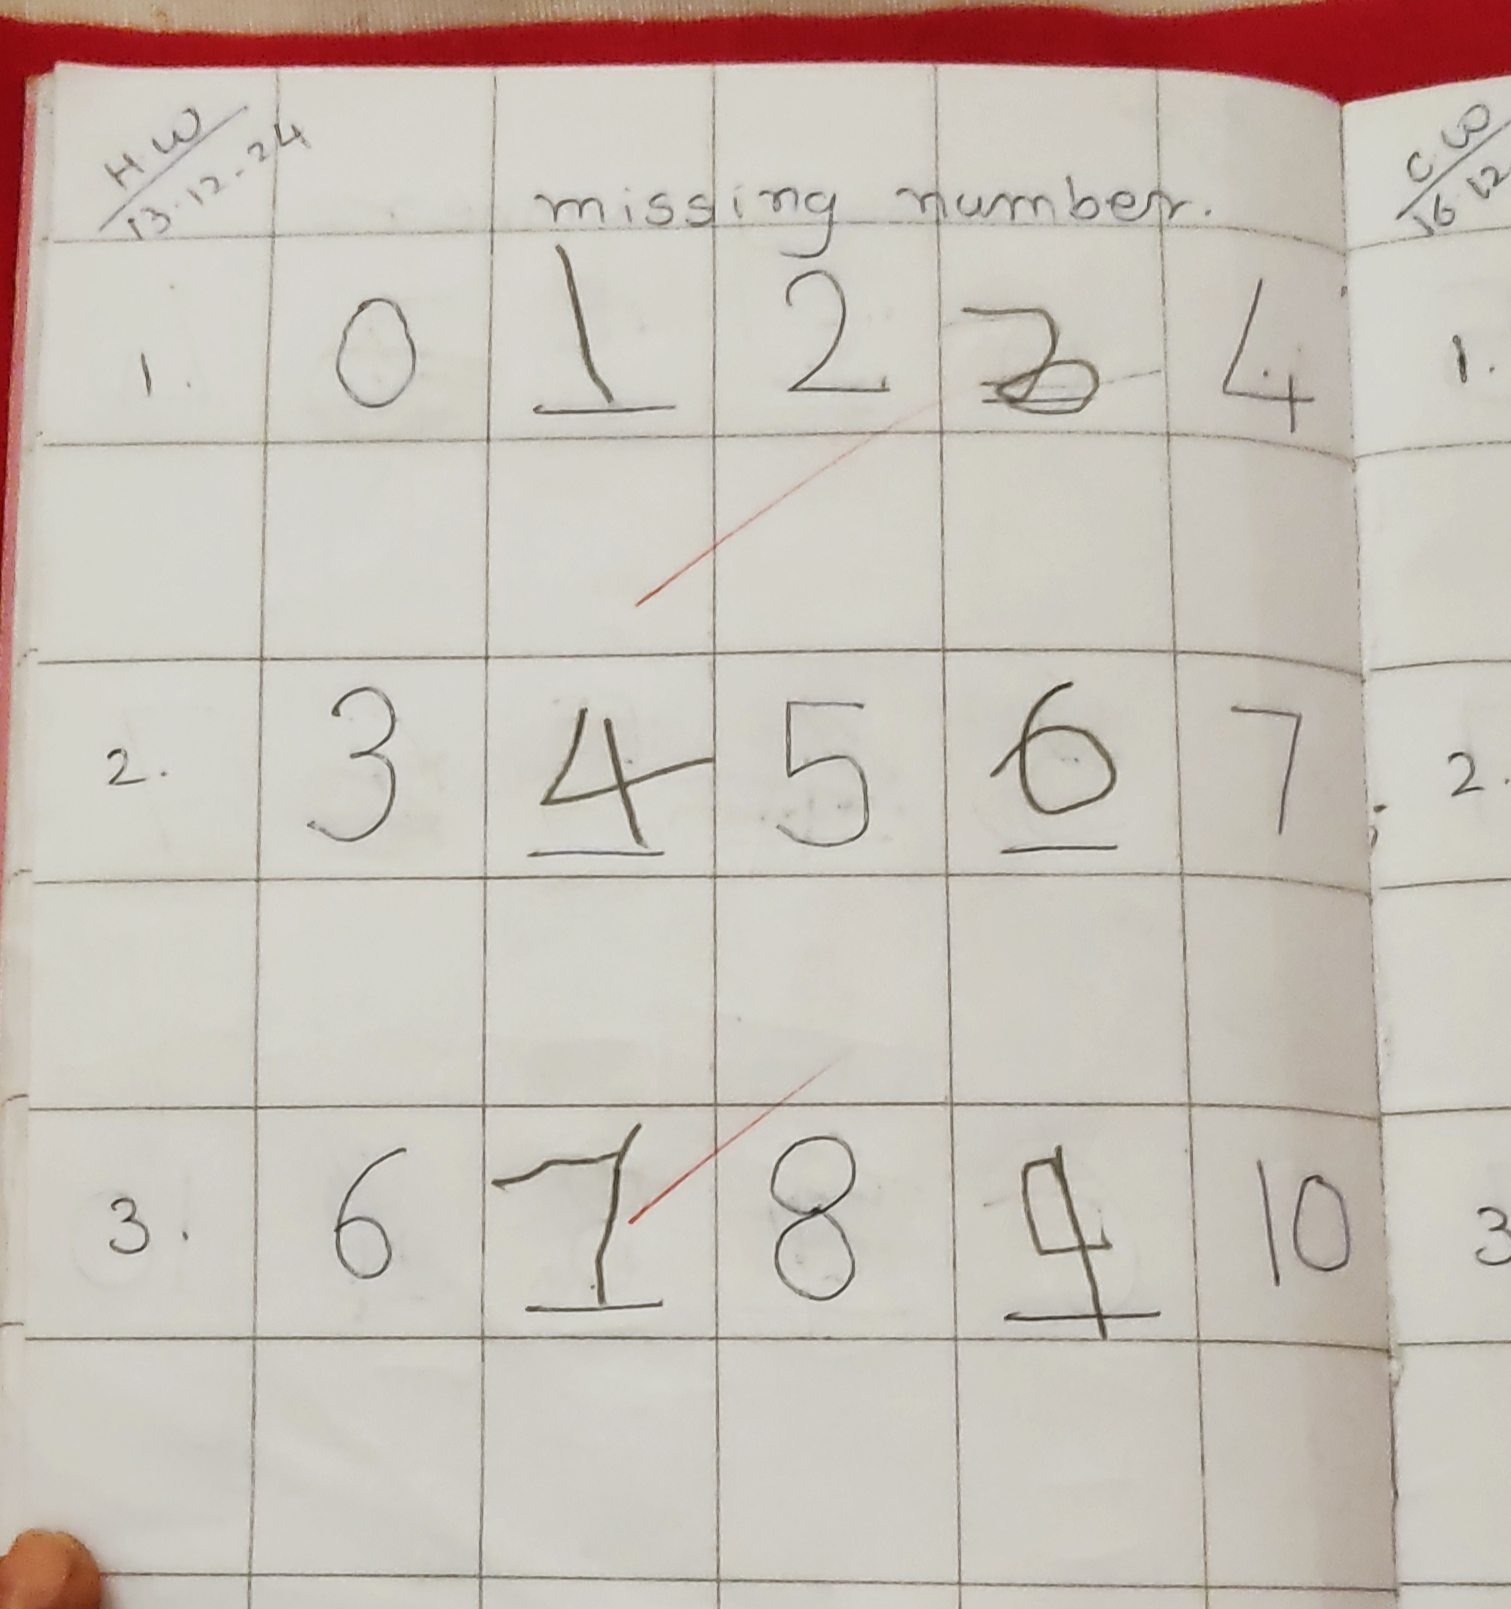 HW
13.12.24
missing number.
1. 0 1 2 3 4
2. 3 4 5 6 7
3. 6 7 8 9 10
CW
16 12
1.
2.
3